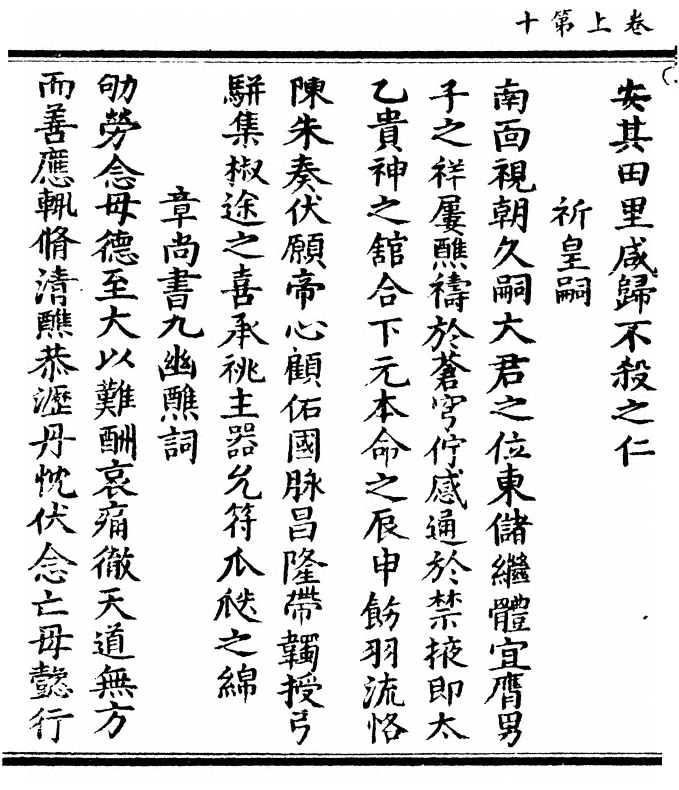 卷上第十
安其田里咸歸不殺之仁
祈皇嗣
南面視朝久嗣大君之位東儲繼體宜膺男
子之祥屢醮禱於蒼穹佇感通於禁掖即太
乙貴神之舘合下元本命之辰申飭羽流恪
陳朱奏伏願帝心顧佑國脉昌隆帶韣授弓
駢集椒途之喜承祧主器允符瓜瓞之綿
章尚書九幽醮詞
劬勞念母德至大以難酬哀痛徹天道無方
而善應輒脩清醮恭瀝丹忱伏念亡母懿行